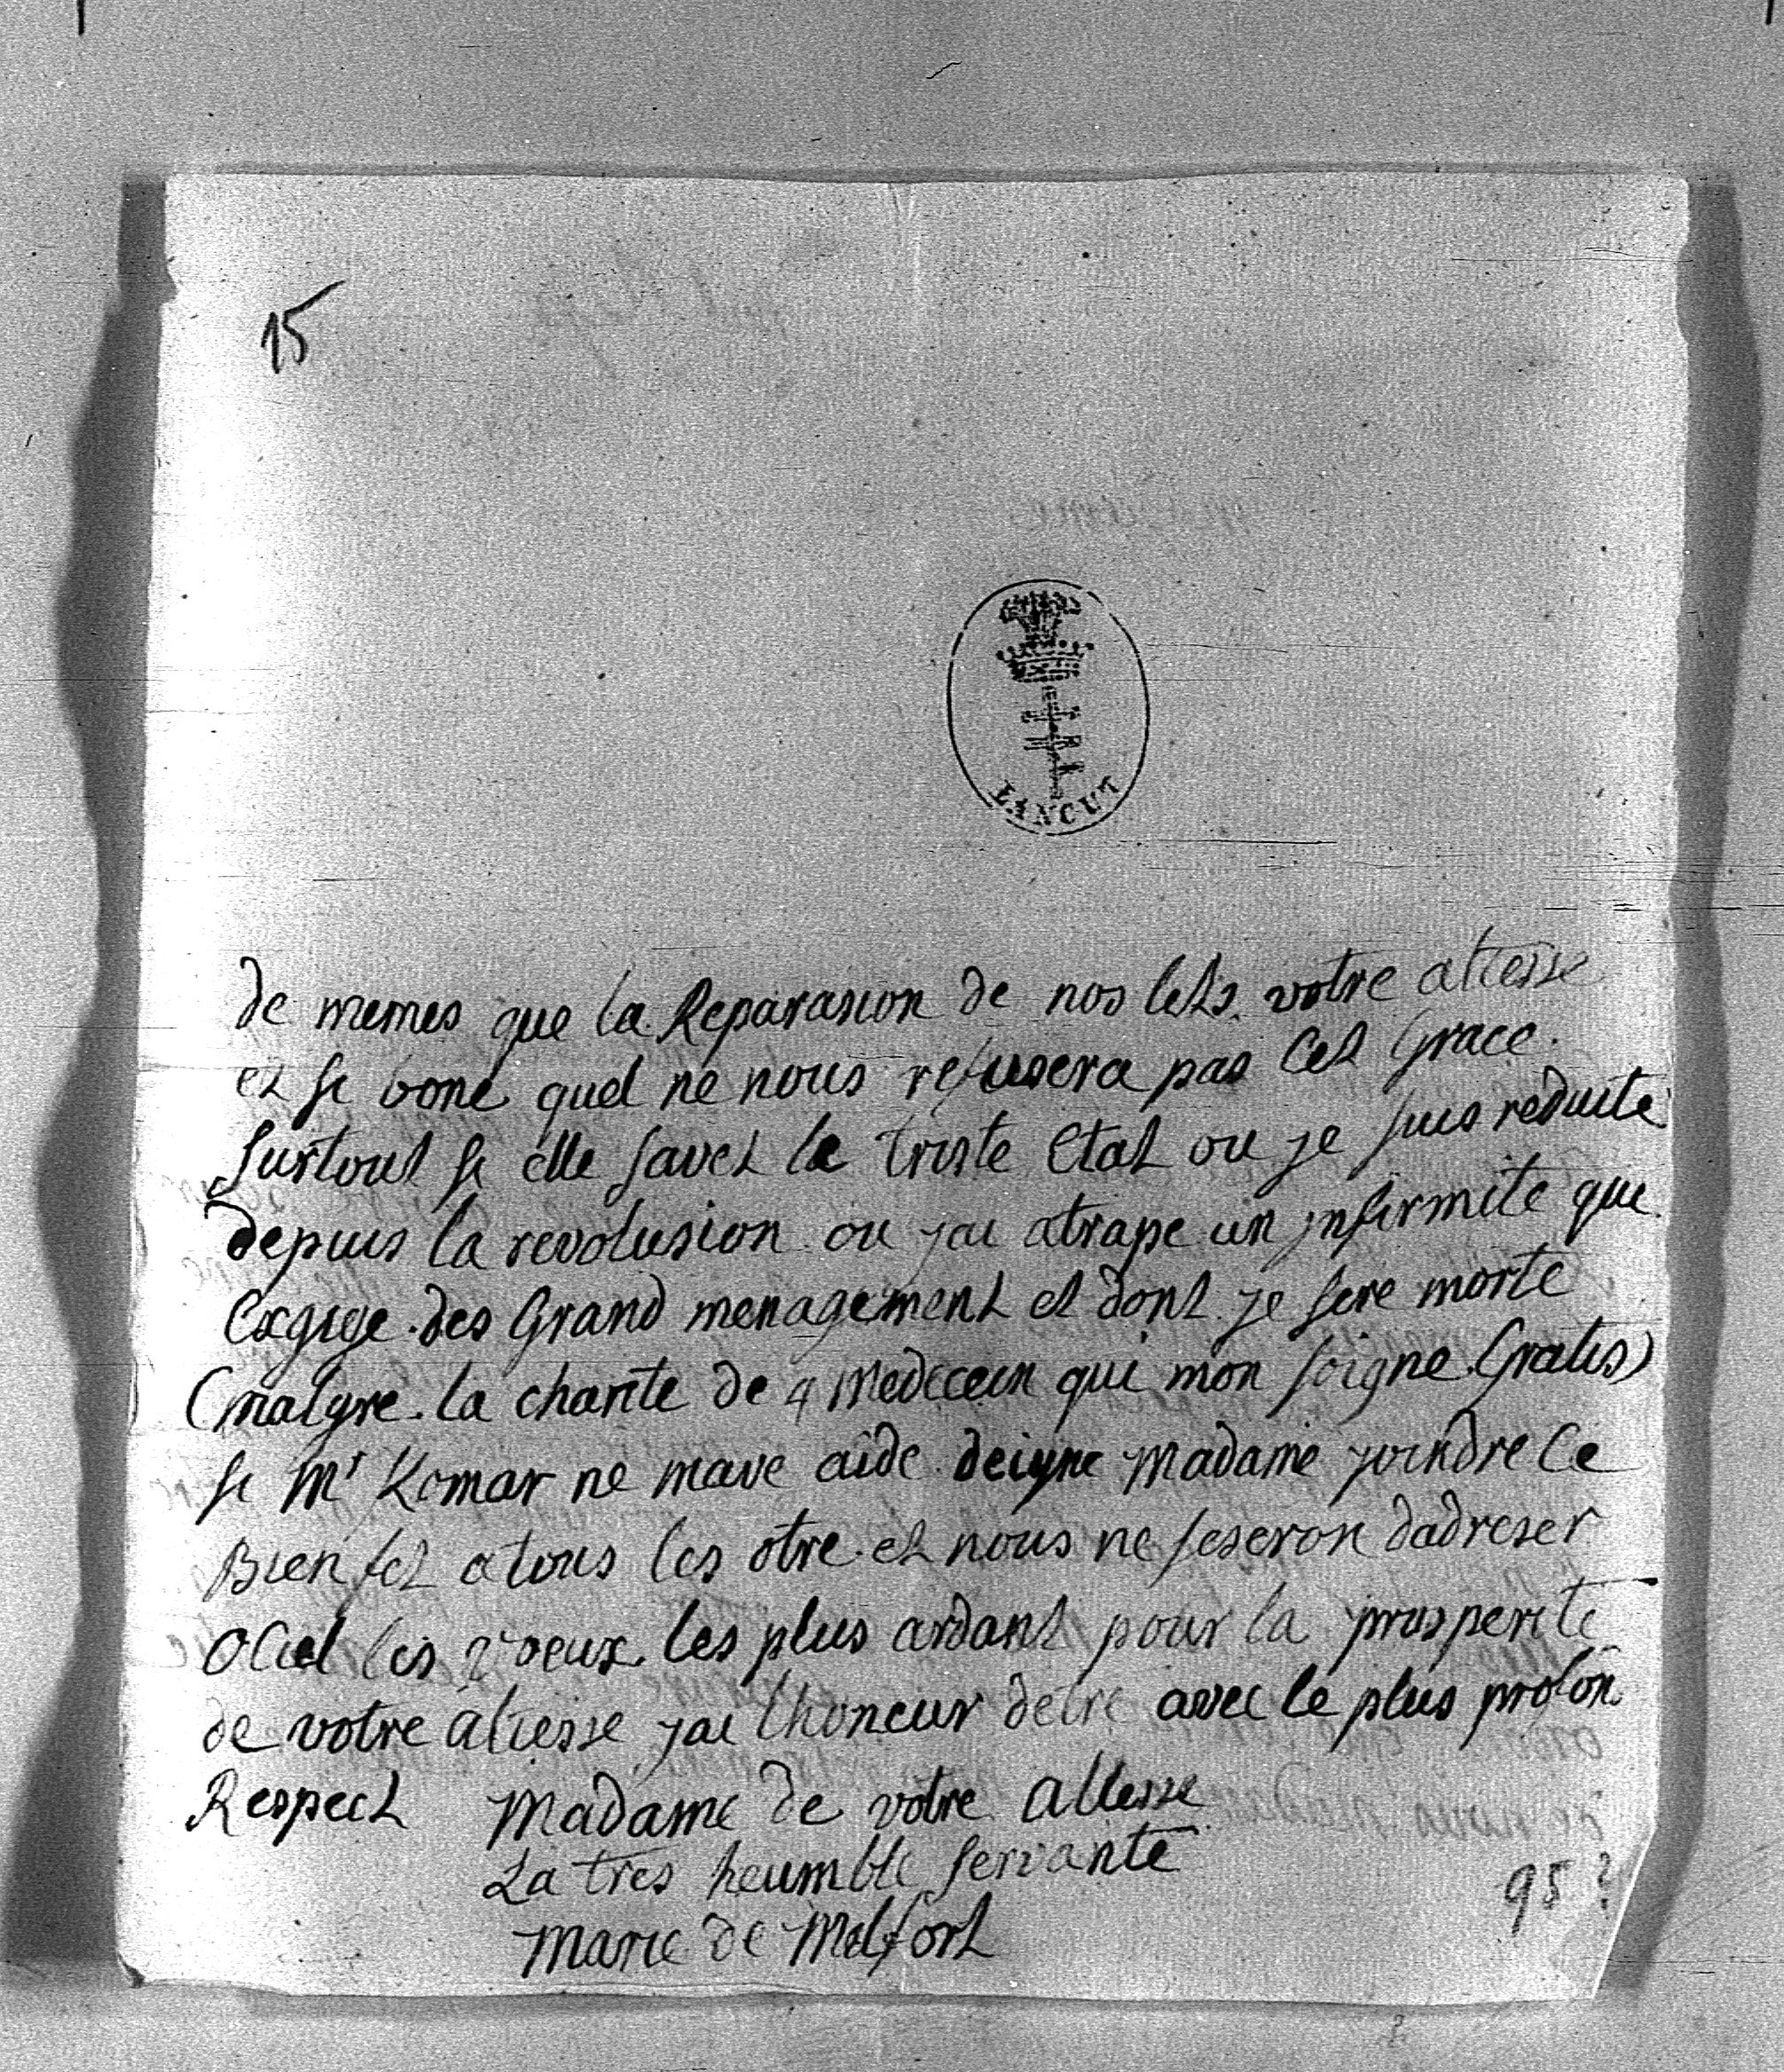 15
LANCUT
de memes que la Reparasion de nos lets votre altesse
et si bone quel ne nous refusera pas Cet Grace.
Surtout si elle savet le triste Etat ou je suis reduite
depuis la revolusion ou jai atrape un jnfirmite que
Exgige des Grand menagement et dont je sere morte
(malgre la charite de 4 Medecein qui mon soigne Gratis)
si Mr Komar ne mave aide deigne Madame joindre Ce
Bienfet a tous les otre et nous ne seseron dadreser
O Ciel les voeux les plus ardant pour la prosperite
de votre altesse jai lhoneur detre avec le plus profon
Respect Madame de votre altesse
La tres heumble servante
Marie de Melfort
95?